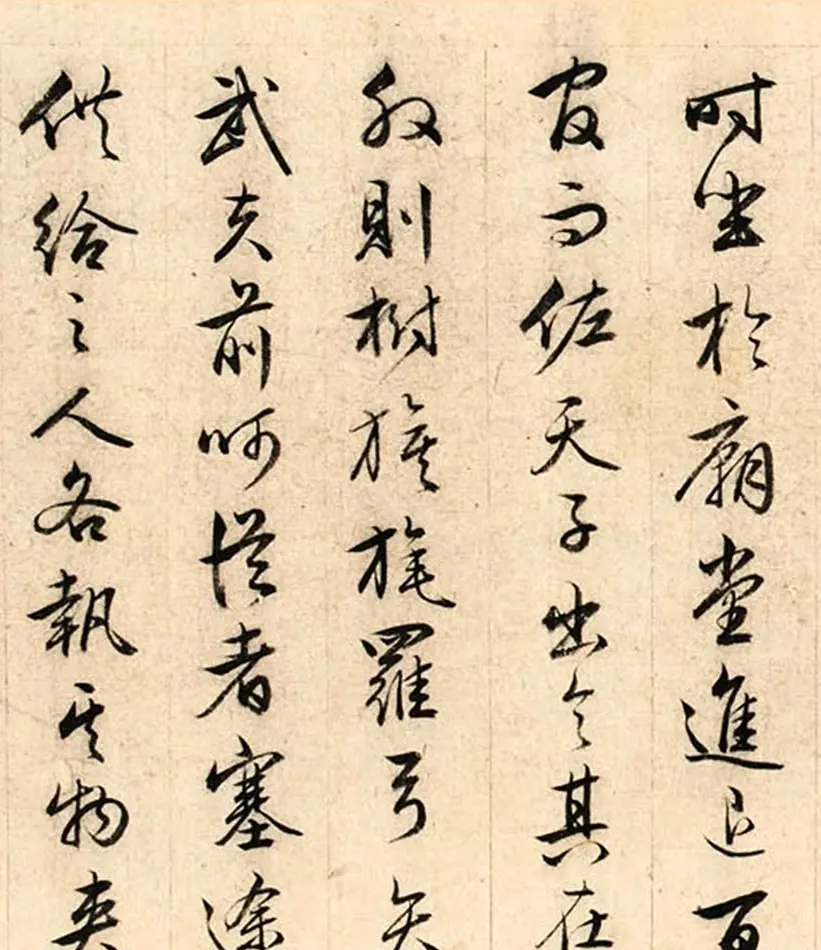 时坐於廟堂進退百
官而佐天子出令其在
外則樹旗旄羅弓矢
武夫前呵從者塞途
供給之人各執其物夾